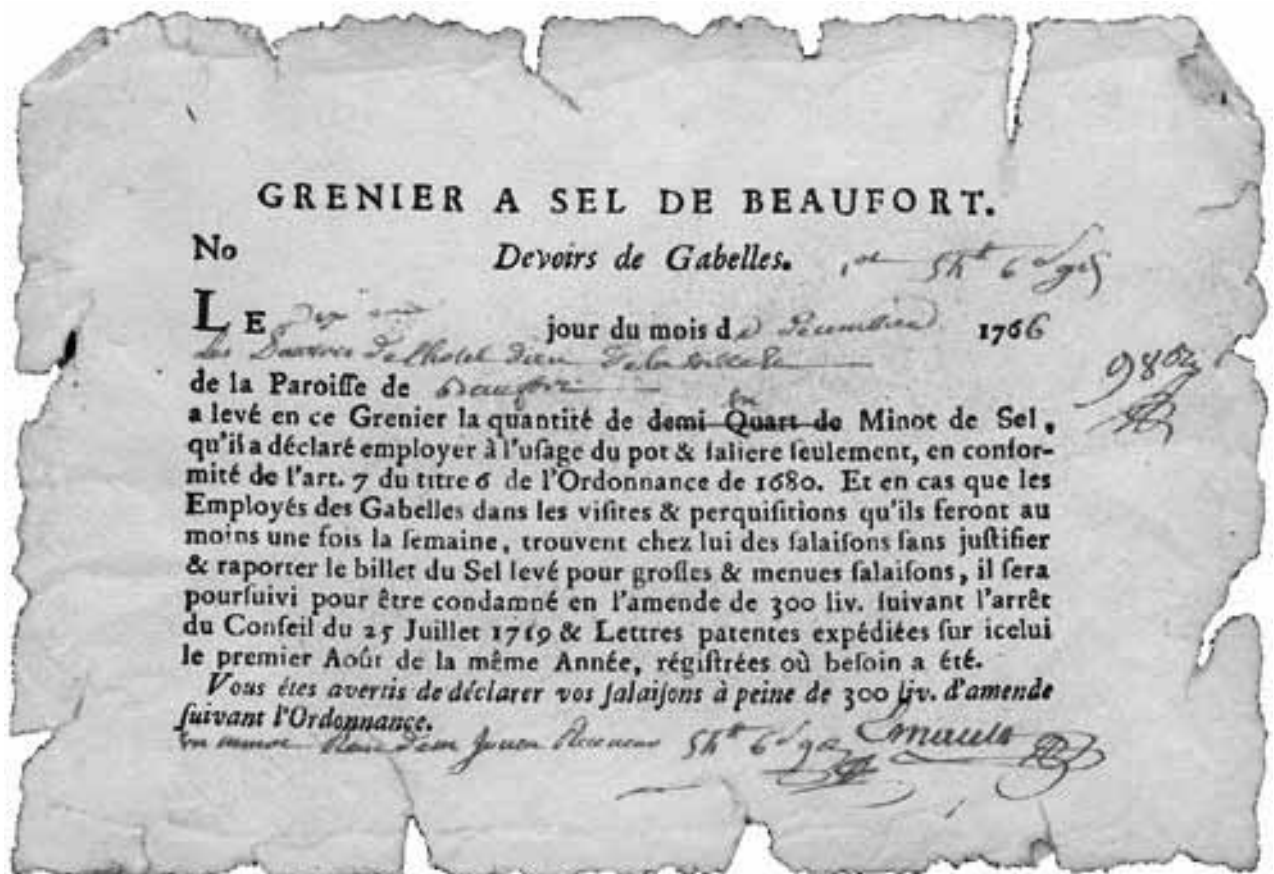 GRENIER A SEL DE BEAUFORT.
No Devoirs de Gabelles. 5# 6
LE jour du mois de Décembre 1766
Les Pauvres De l'hotel Dieu De la ville de
de la Paroiſſe de Beaufort
a levé en ce Grenier la quantité de demi Quart de Minot de Sel,
qu'il a déclaré employer à l'uſage du pot & ſaliere ſeulement, en confor-
mité de l'art. 7 du titre 6 de l'Ordonnance de 1680. Et en cas que les
Employés des Gabelles dans les viſites & perquiſitions qu'ils feront au
moins une fois la ſemaine, trouvent chez lui des ſalaiſons ſans juſtifier
& raporter le billet du Sel levé pour groſſes & menues ſalaiſons, il ſera
pourſuivi pour être condamné en l'amende de 300 liv. ſuivant l'arrêt
du Conſeil du 25 Juillet 1719 & Lettres patentes expédiées ſur icelui
le premier Août de la même Année, régiſtrées où beſoin a été.
Vous êtes avertis de déclarer vos ſalaiſons à peine de 300 liv. d'amende
ſuivant l'Ordonnance.
un minot